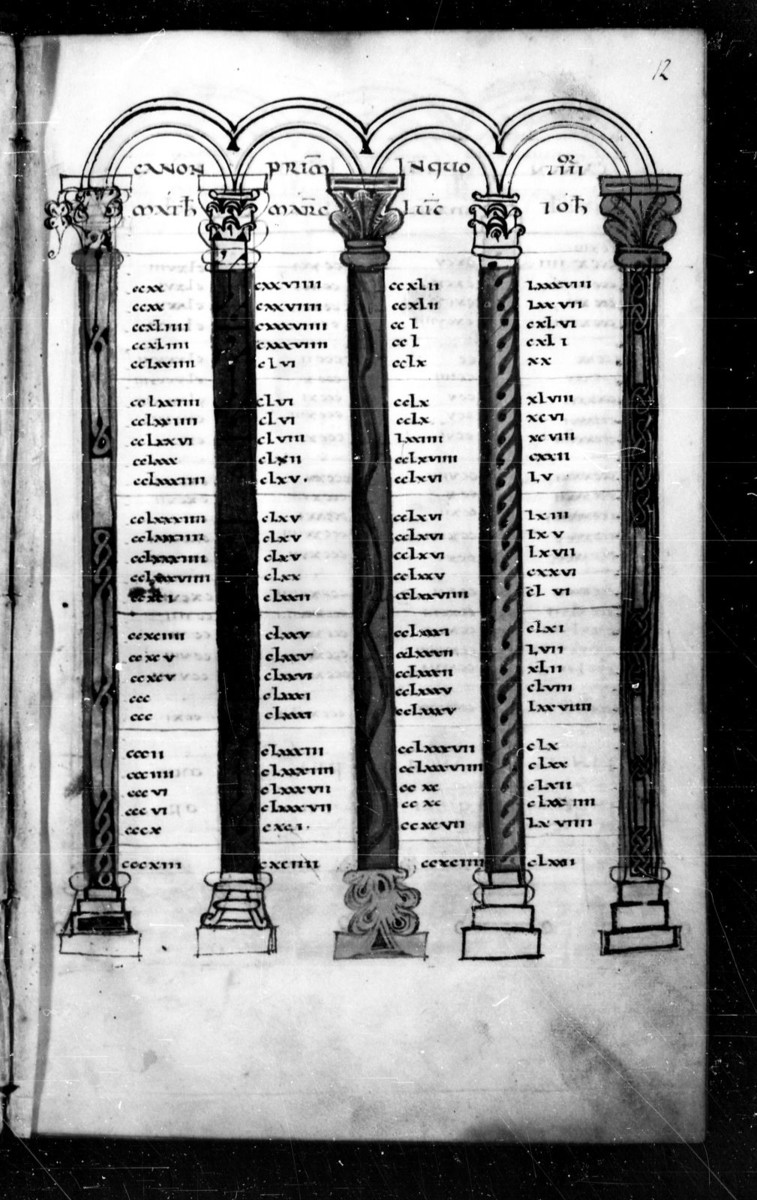 12
CANON PRIM̅ INQUO IIII OR
MATH MARC LUC IOH
ccxx cxxviiii ccxlii lxxxviii
ccxx cxxviiii ccxlii lxxvii
ccxliiii cxxxviiii ccl cxlvi
ccxliiii cxxxviiii ccl cxli
cclxxiiii clvi cclx xx
cclxxiiii clvi cclx xlviii
cclxxiiii clvi cclx xcvi
cclxxvi clviii lxxiiii xcviii
cclxxx clxii cclxviiii cxxii
cclxxxiiii clxv· cclxvi lv
cclxxxiiii clxv cclxvi lxiii
cclxxxiiii clxv cclxvi lxv
cclxxxiiii clxv cclxvi lxvii
cclxxxviiii clxx cclxxv cxxvi
ccxci clxxii cclxxviiii clvi
ccxciiii clxxv cclxxxi clxi
ccxcv clxxvi cclxxxii lvii
ccxcv clxxvi cclxxxii xlii
ccc clxxxi cclxxxv clviii
ccc clxxxi cclxxxv lxxviiii
cccii clxxxiii cclxxxvii clx
ccciiii clxxxiiii cclxxxviiii clxx
cccvi clxxxvii ccxc clxii
cccvi clxxxvii ccxc clxxiiii
cccx cxci· ccxcvii lxviiii
cccxiii cxciiii ccxciiii clxxii